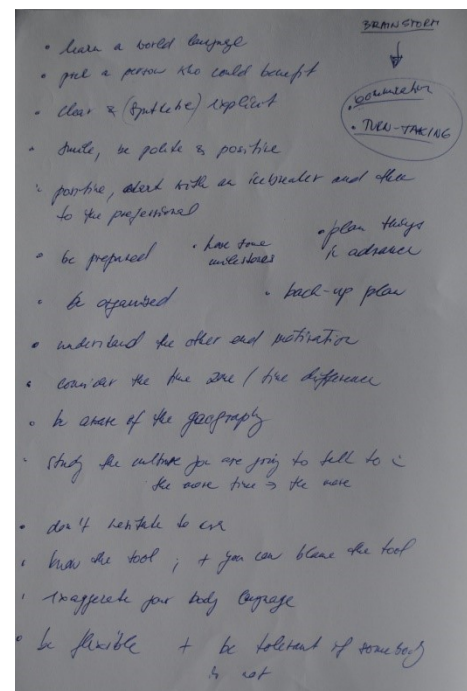 BRAINSTORM
• TURN-TAKING
• learn a world language
• a person who could benefit
• clear & (synthetic) explicit
• smile, be polite & positive
• positive, start with an icebreaker and then
to the professional
• be prepared
• have some
milestones
• plan things
in advance
• be organised
• back-up plan
• understand the other end motivation
• consider the time zone / time difference
• be aware of the geography
• study the culture you are going to talk to
the more time → the more
• don't hesitate to ask
• know the tool ; + you can blame the tool
• exaggerate your body language
• be flexible + be tolerant if somebody
is not